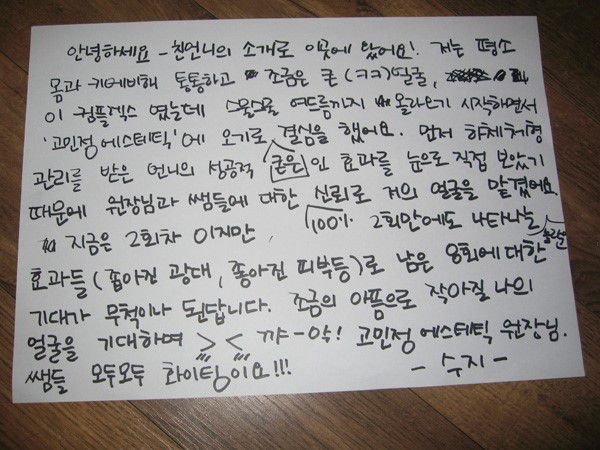 안녕하세요 - 친언니의 소개로 이곳에 왔어요! 저는 평소
몸과 키에비해 통통하고 조금은 큰 (ㅋㅋ)얼굴,
이 컴플렉스 였는데 스물스물 여드름까지 올라오기 시작하면서
'고민정에스테틱'에 오기로 결심을 했어요. 먼저 하체체형
관리를 받은 언니의 성공적 큰은 인 효과를 눈으로 직접 보았기
때문에 원장님과 쌤들에 대한 신뢰로 저의 얼굴을 맡겼어요.
지금은 2회차 이지만, 100% 2회만에도 나타나는 놀라운
효과들 (좁아진 광대, 좋아진 피부등)로 남은 8회에대한
기대가 무척이나 된답니다. 조금의 아픔으로 작아질 나의
얼굴을 기대하며 >< 꺄-악! 고민정에스테틱 원장님.
쌤들 모두모두 화이팅이요!!! - 수지 -